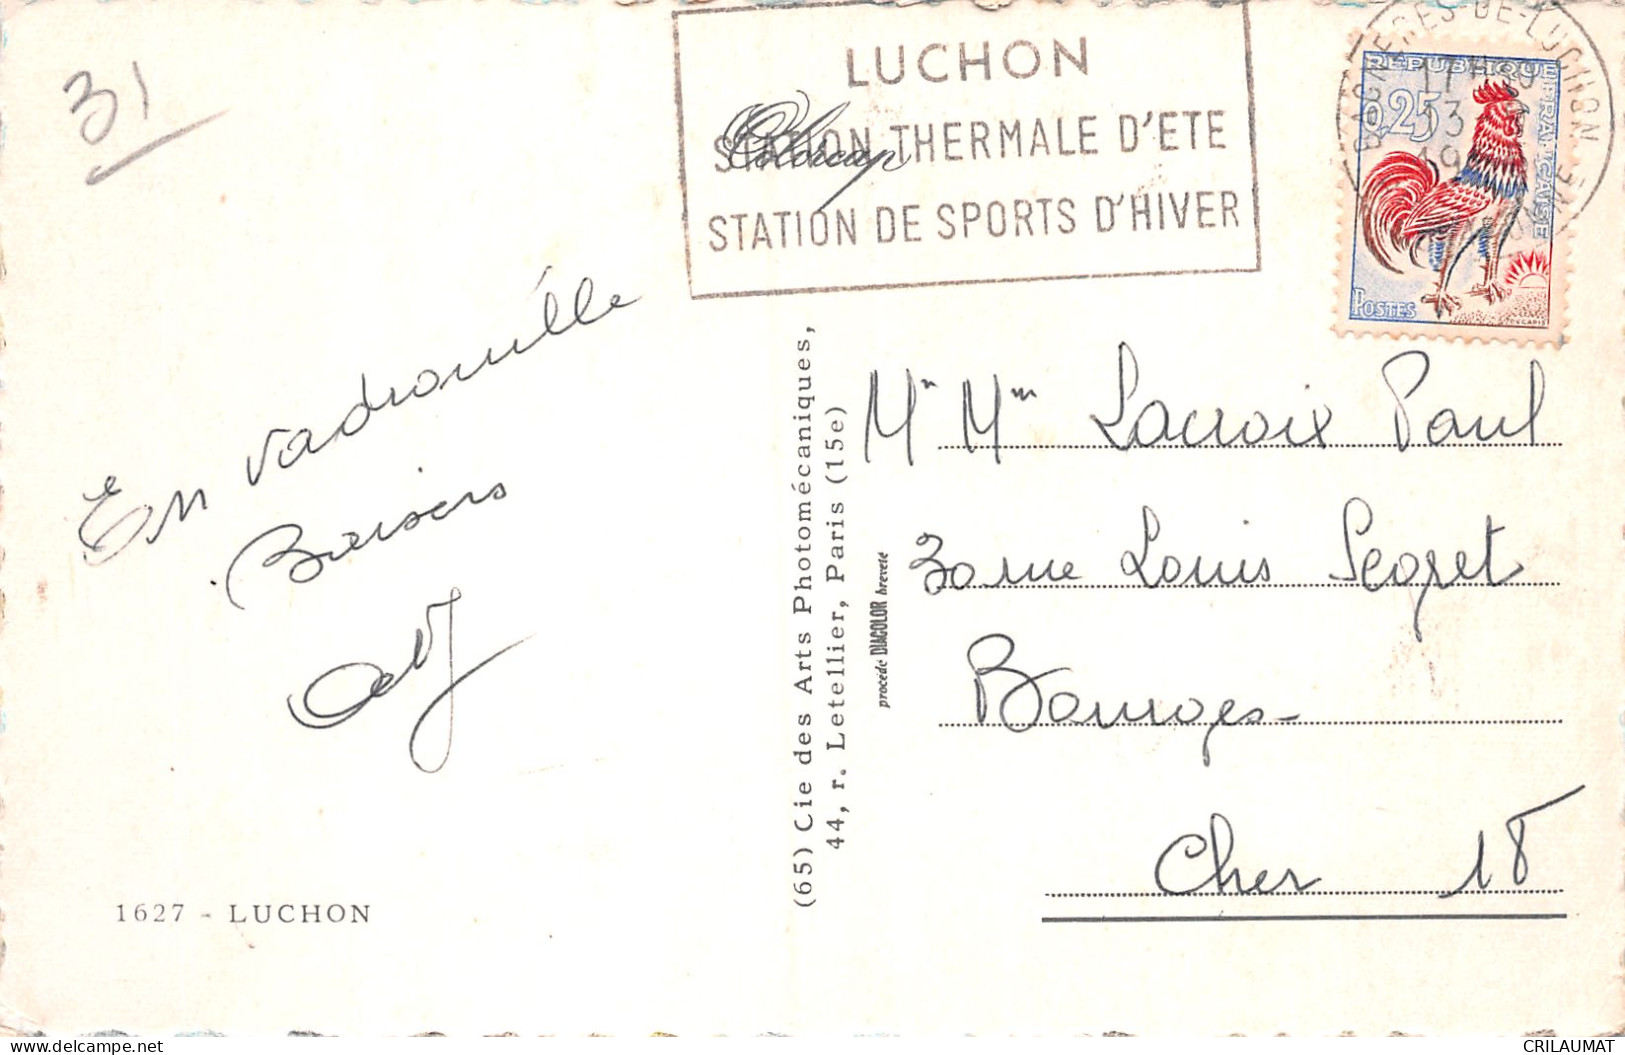 31
LUCHON
Colorcap
STATION THERMALE D'ETE
STATION DE SPORTS D'HIVER
BAGNERES-DE-LUCHON
REPUBLIQUE FRANÇAISE
0,25
POSTES
En vadrouille
Baisers
1627 - LUCHON
(65) Cie des Arts Photomécaniques,
44, r. Letellier, Paris (15e)
procédé DIACOLOR breveté
Mr Mme Lacroix Paul
30 rue Louis Segret
Bourges
Cher 18
CRILAUMAT
www.delcampe.net